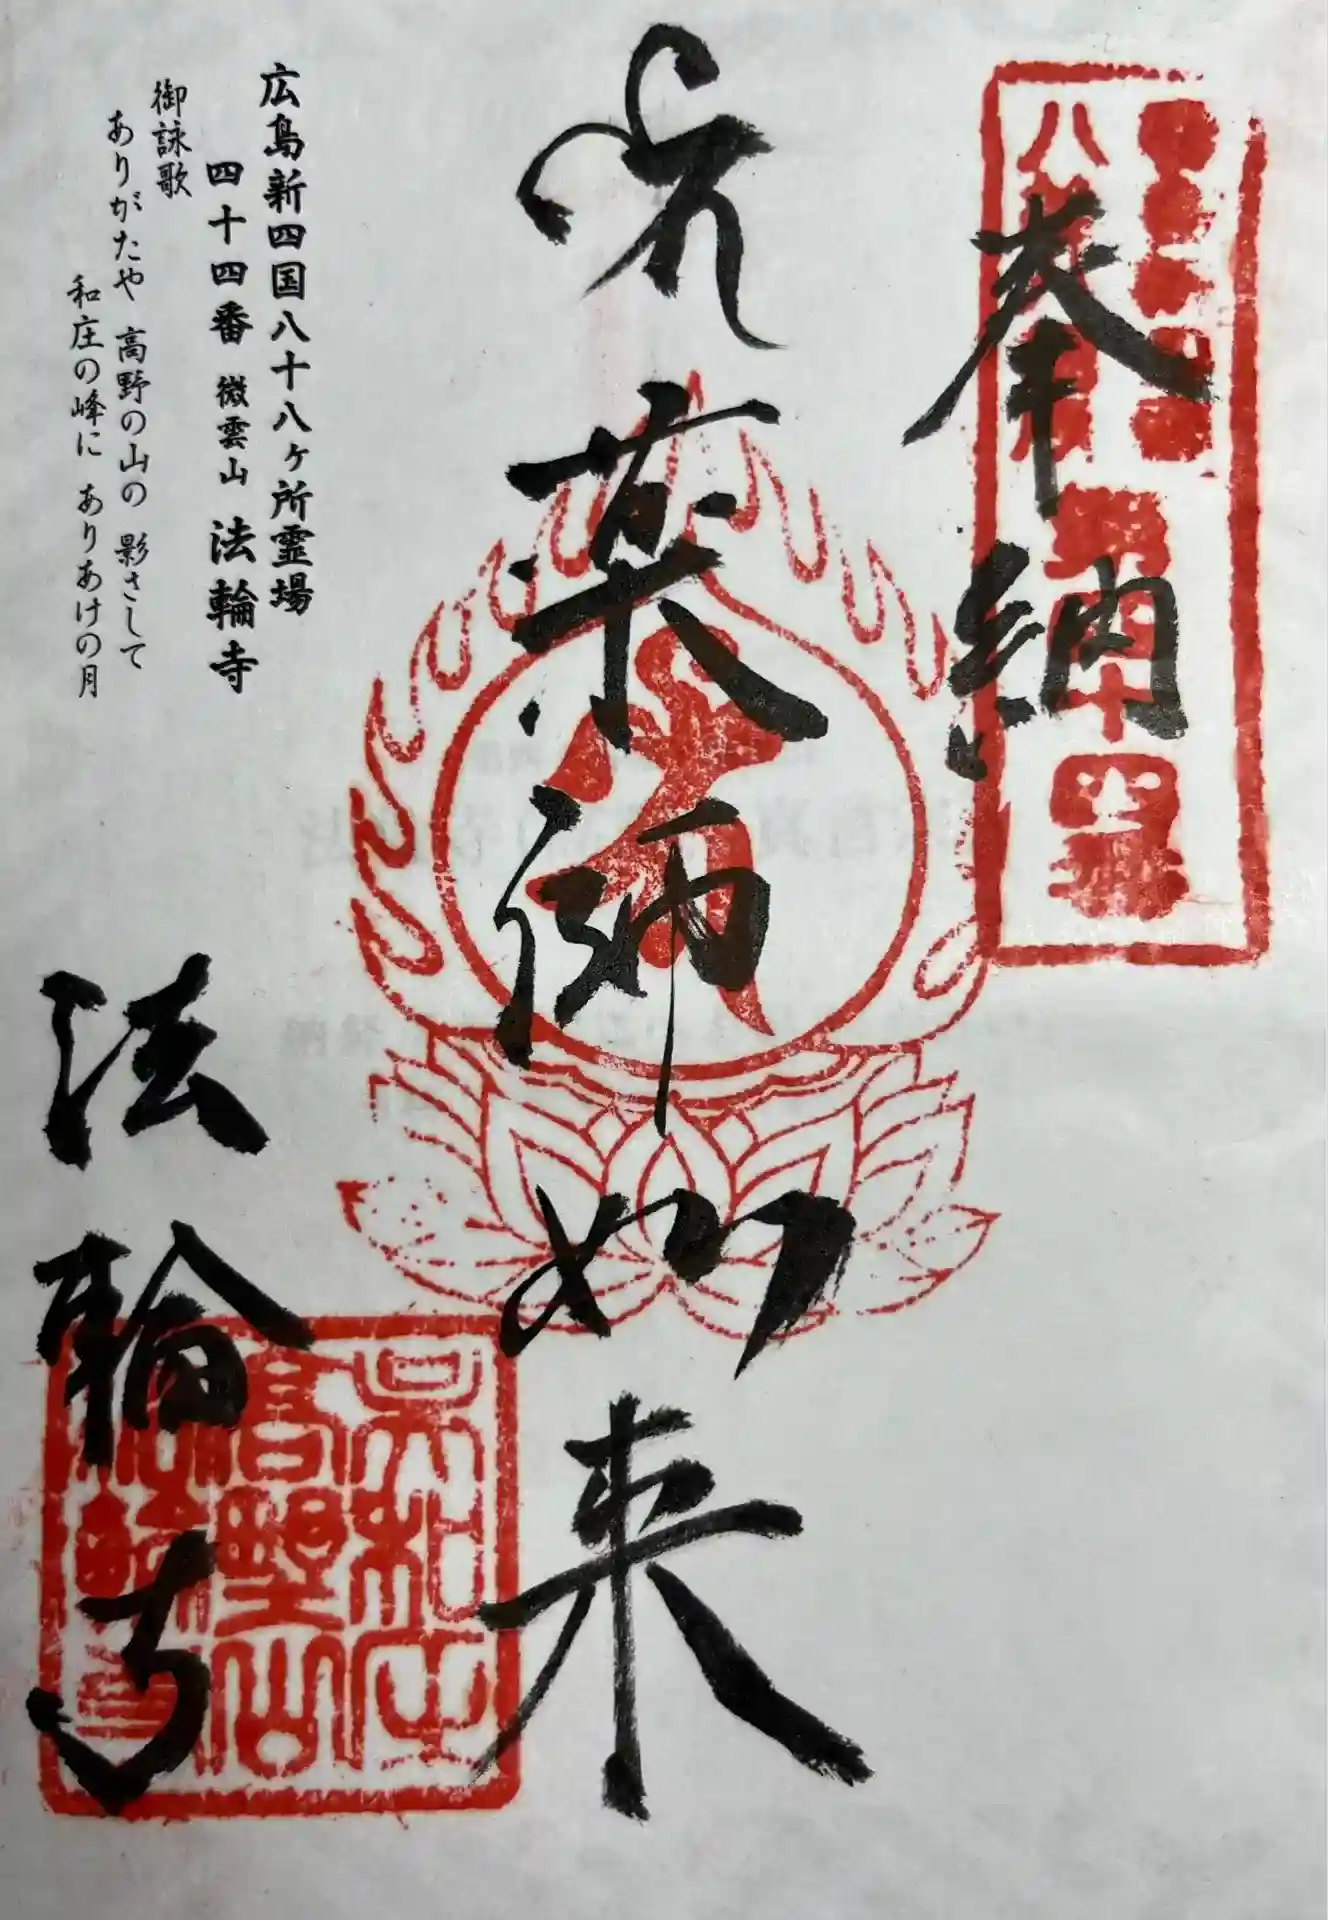 奉納
第四十四番
薬師如来
広島新四国八十八ヶ所霊場
四十四番 微雲山 法輪寺
御詠歌
ありがたや 高野の山の 影さして
和庄の峰に ありあけの月
法輪寺
呉和庄
高野山